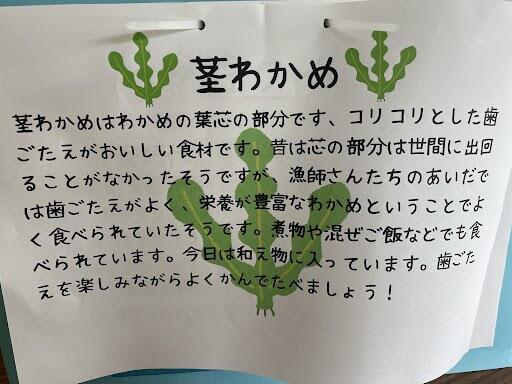 茎わかめ
茎わかめはわかめの葉芯の部分です、コリコリとした歯
ごたえがおいしい食材です。昔は芯の部分は世間に出回
ることがなかったそうですが、漁師さんたちのあいだで
は歯ごたえがよく、栄養が豊富なわかめということでよ
く食べられていたそうです。煮物や混ぜご飯などでも食
べられています。今日は和え物に入っています。歯ごた
えを楽しみながらよくかんでたべましょう！